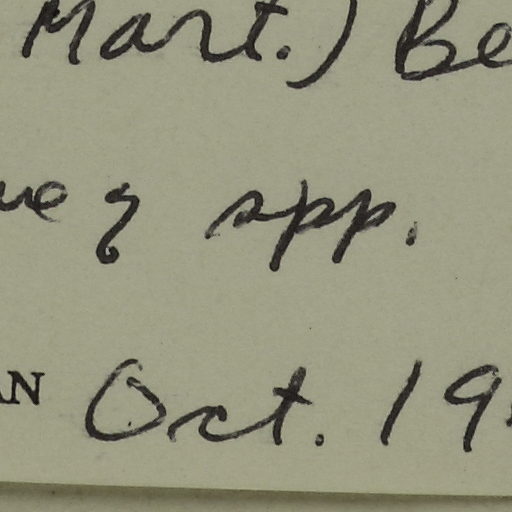 Mart.) Be
ue q spp.
AN Oct. 19